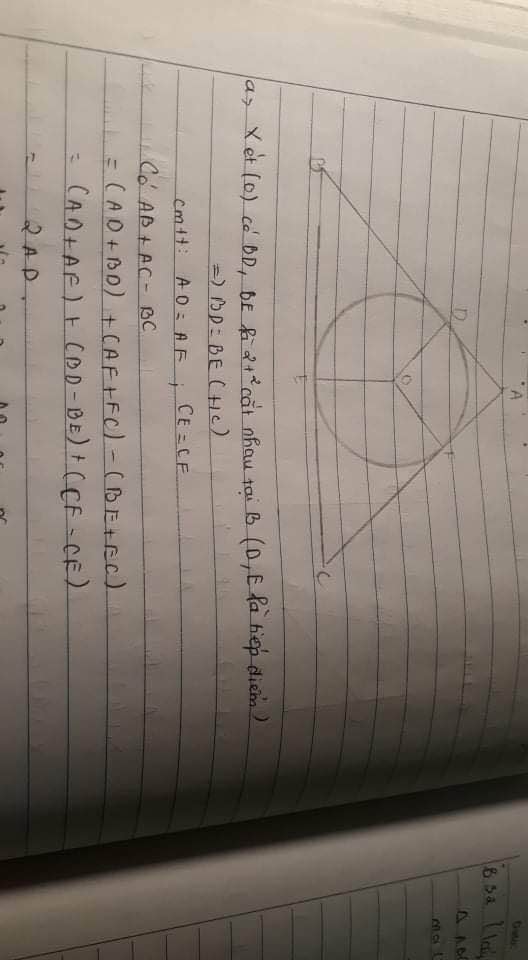 A
D
F
O
B
E
C
a> Xét (O) có BD, BE là 2 t² cắt nhau tại B (D, E là tiếp điểm)
=) BD = BE (t/c)
cmtt: AD = AF ; CE = CF
Có AB + AC - BC
= (AD + BD) + (AF + FC) - (BE + EC)
= (AD + AF) + (BD - BE) + (CF - CE)
= 2AD.
B 32